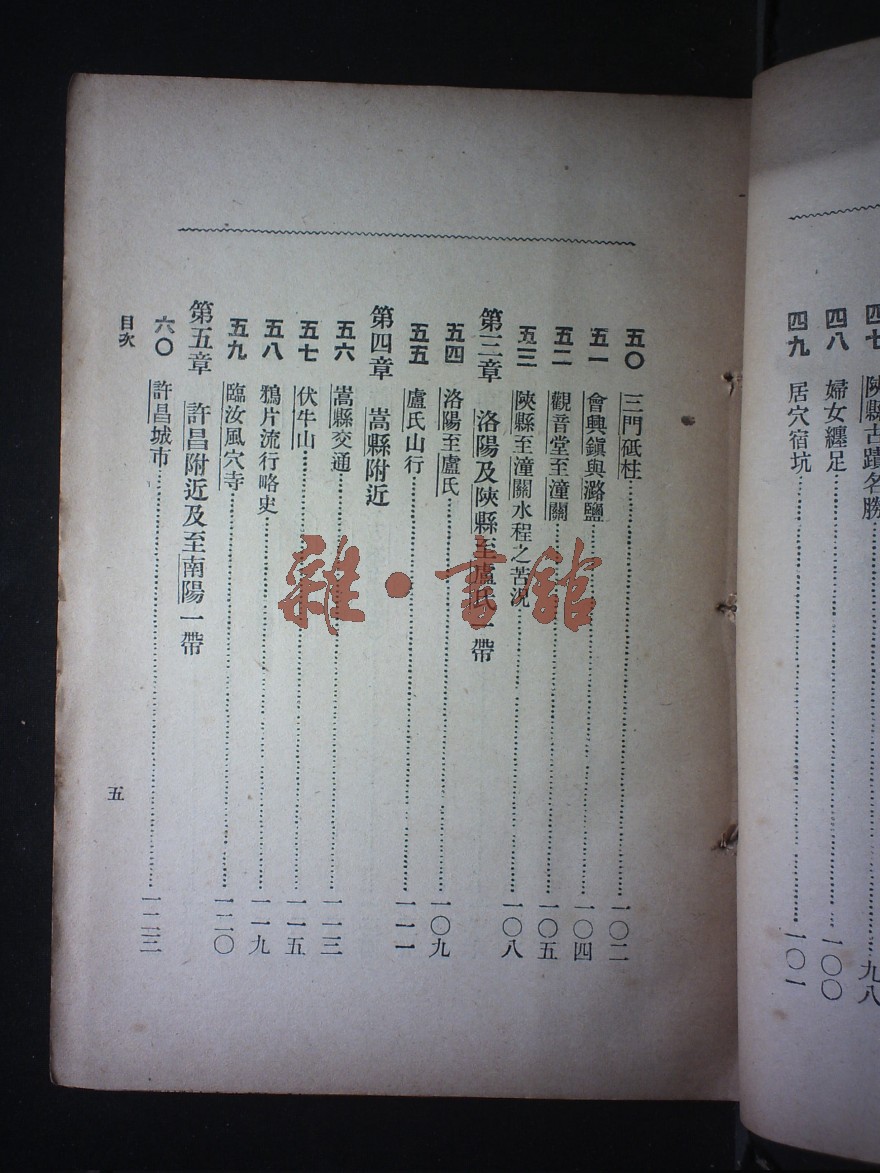 四七　陝縣古蹟名勝……九八
四八　婦女纏足……一〇〇
四九　居穴宿坑……一〇一
五〇　三門砥柱……一〇二
五一　會興鎭與潞鹽……一〇四
五二　觀音堂至潼關……一〇五
五三　陝縣至潼關水程之苦況……一〇八
第三章　洛陽及陝縣至盧氏一帶
五四　洛陽至盧氏……一〇九
五五　盧氏山行……一一一
第四章　嵩縣附近
五六　嵩縣交通……一一三
五七　伏牛山……一一五
五八　鴉片流行略史……一一九
五九　臨汝風穴寺……一二〇
第五章　許昌附近及至南陽一帶
六〇　許昌城市……一二三
目次
五
雜·書館